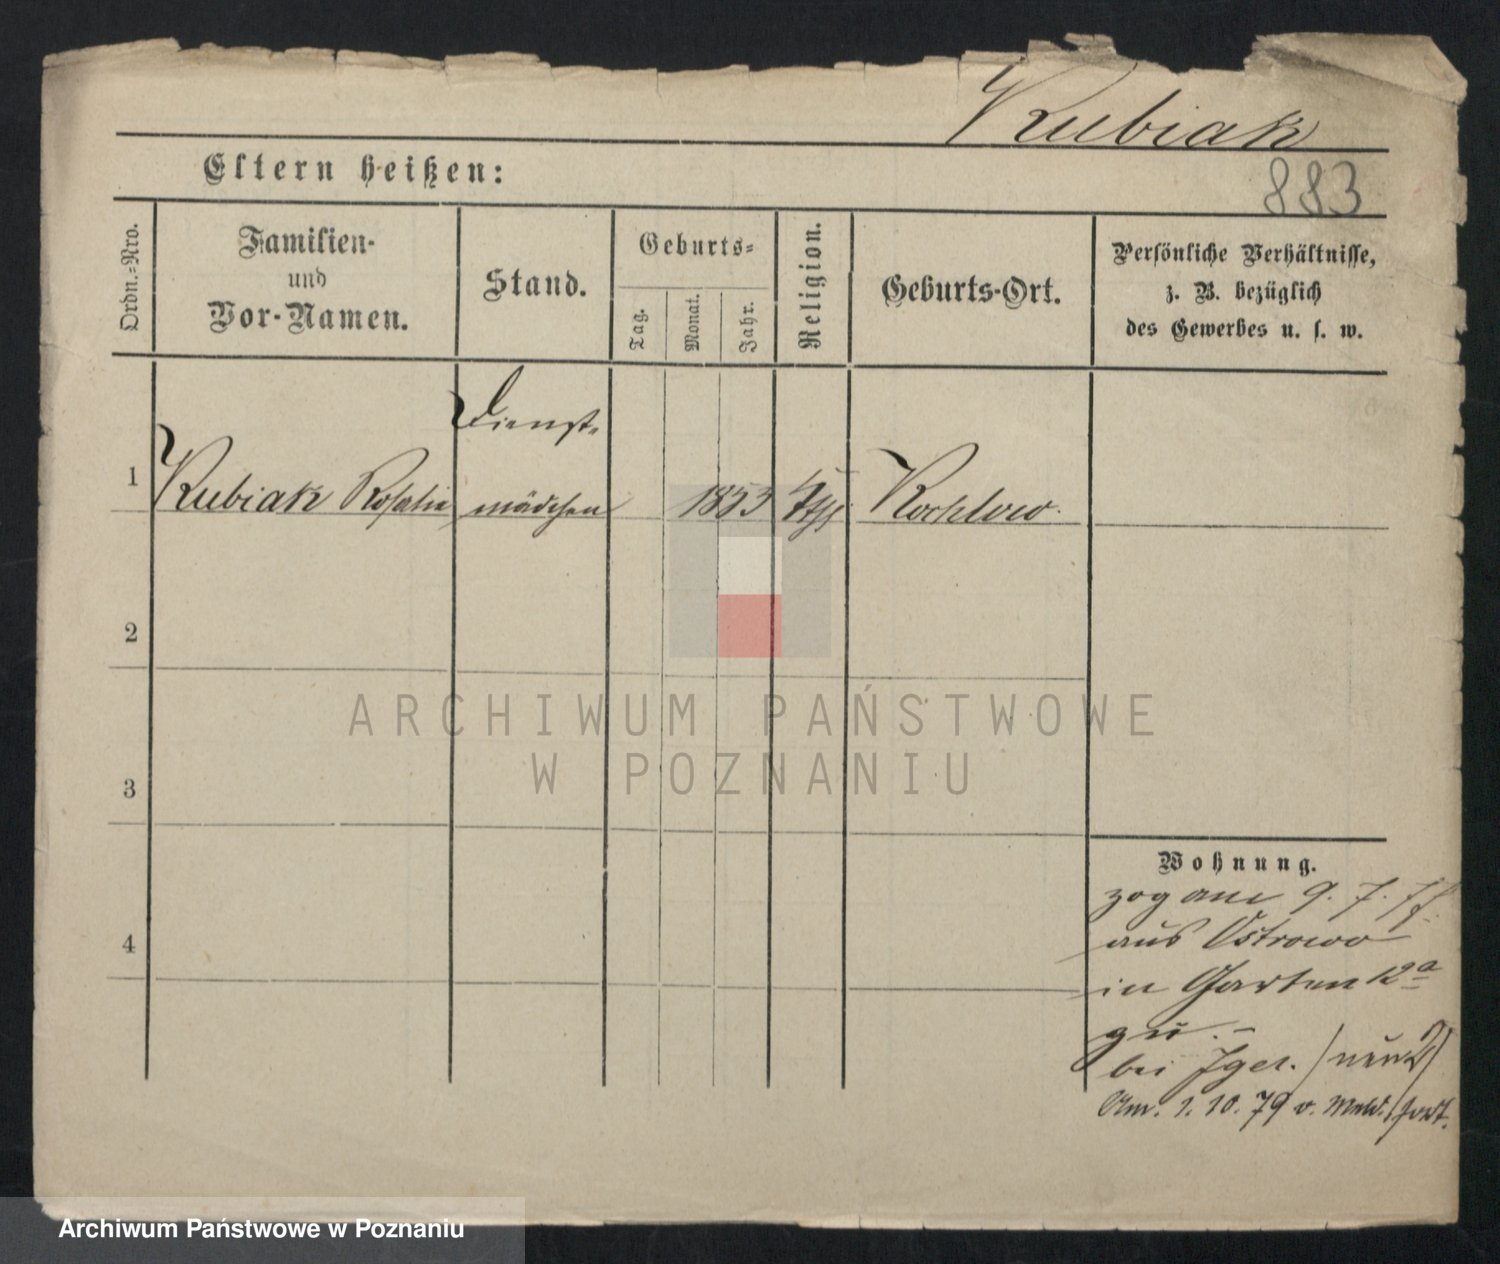 Kubiak
Eltern heißen:
883
Ordn.-Nro.
Familien-
und
Vor-Namen.
Stand.
Geburts-
Tag.
Monat.
Jahr.
Religion.
Geburts-Ort.
Persönliche Verhältnisse,
z. B. bezüglich
des Gewerbes u. s. w.
1
Kubiak Rosalie
Dienst-
mädchen
1853
kth
Kochlowo.
2
3
4
Wohnung.
zog am 9. 7. 77.
aus Ostrowo
in Garten 12a
zu.-
bei Jger.
Am. 1. 10. 79 v. Meld. fort.
ARCHIWUM PAŃSTWOWE
W POZNANIU
Archiwum Państwowe w Poznaniu